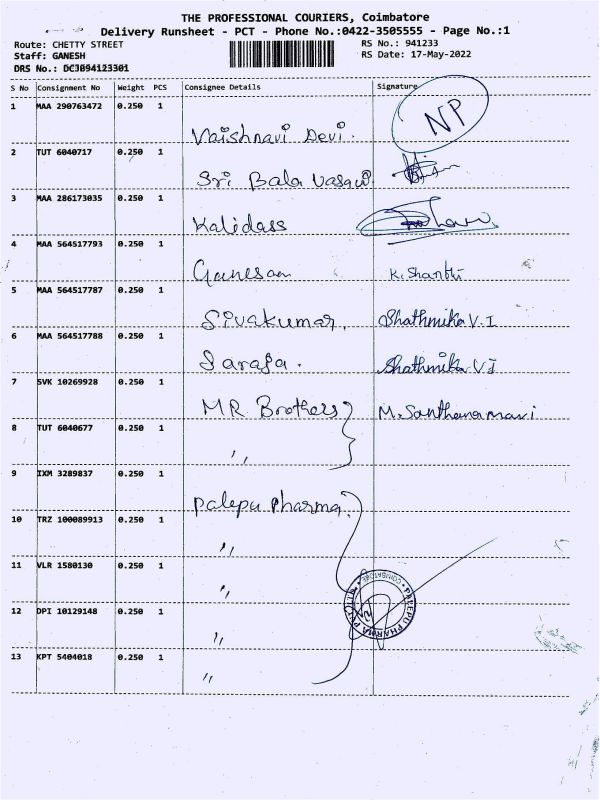 THE PROFESSIONAL COURIERS, Coimbatore
Delivery Runsheet - PCT - Phone No.:0422-3505555 - Page No.:1
Route: CHETTY STREET RS No.: 941233
Staff: GANESH RS Date: 17-May-2022
DRS No.: DCJ894123301
S No Consignment No Weight PCS Consignee Details Signature
1 MAA 290763472 0.250 1
Vaishnavi Devi. NP
2 TUT 6040717 0.250 1
Sri Bala Vasavi
3 MAA 286173035 0.250 1
Kalidass
4 MAA 564517793 0.250 1
Ganesan K. Shanthi
5 MAA 564517787 0.250 1
Sivakumar. Shathmika V.I
6 MAA 564517788 0.250 1
Saraja. Shathmika V I
7 SVK 10269928 0.250 1
MR Brothers M. Santhanamari
8 TUT 6040677 0.250 1
,,
9 IXM 3289837 0.250 1
Palepu Pharma.
10 TRZ 100089913 0.250 1
,,
11 VLR 1580130 0.250 1
,,
PALEPU PHARMA PRIVATE COIMBATORE
12 DPI 10129148 0.250 1
,,
13 KPT 5404018 0.250 1
,,